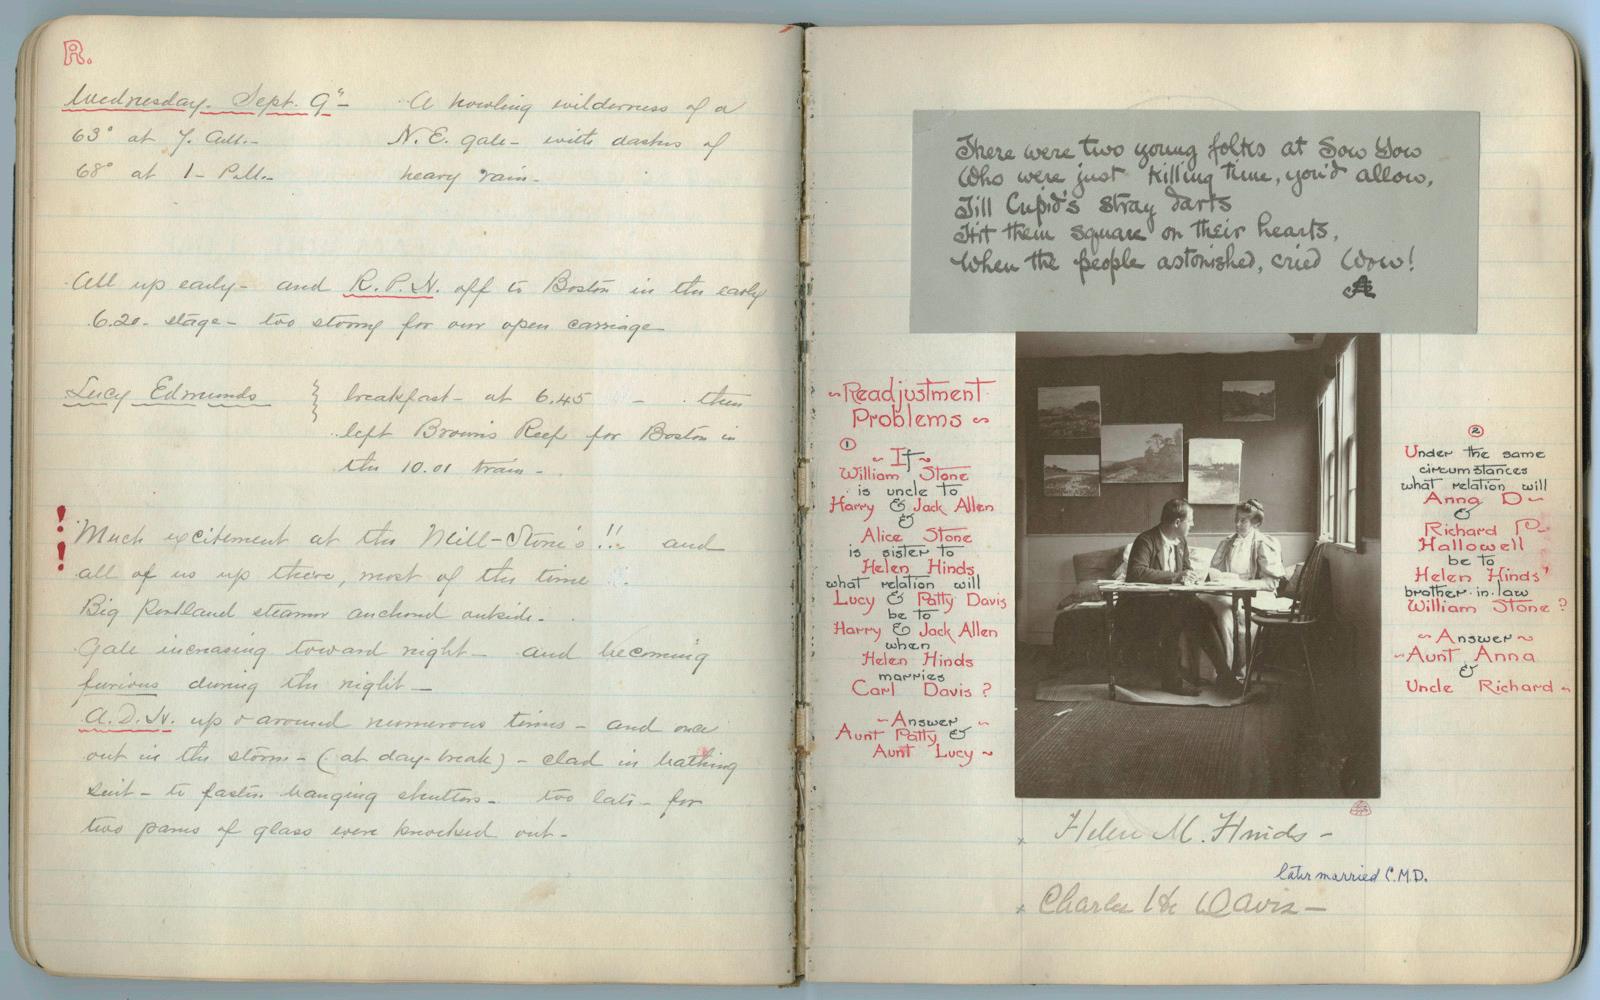 R.
Wednesday. Sept. 9"-
63° at 7. A.M.-
68° at 1- P.M.-
A howling wilderness of a
N.E. gale- with dashes of
heavy rain-
All up early- and R.P.H. off to Boston in the early
6.20- stage- too stormy for our open carriage
Lucy Edmunds
breakfast- at 6.45 - then
left Brown's Reef for Boston in
the 10.01 train-
! Much excitement at the Mill-Stone's!! and
! all of us up there, most of the time
Big Portland steamer anchored outside-
Gale increasing toward night- and becoming
furious during the night-
A.D.H. up & around numerous times- and once
out in the storm- (at day-break)- clad in bathing
suit- to fasten banging shutters- too late- for
two panes of glass were knocked out-
There were two young folks at Sow Yow
Who were just killing time, you'd allow,
Till Cupid's stray darts
Hit them square on their hearts,
When the people astonished, cried Wow!
~Readjustment
Problems~
1
~If~
William Stone
is uncle to
Harry & Jack Allen
&
Alice Stone
is sister to
Helen Hinds
what relation will
Lucy & Patty Davis
be to
Harry & Jack Allen
when
Helen Hinds
marries
Carl Davis?
~Answer~
Aunt Patty &
Aunt Lucy~
2
Under the same
circumstances
what relation will
Anna D~
&
Richard P~
Hallowell
be to
Helen Hinds'
brother-in-law
William Stone?
~Answer~
~Aunt Anna
&
Uncle Richard~
x Helen M. Hinds-
later married C.M.D.
x Charles Davis-